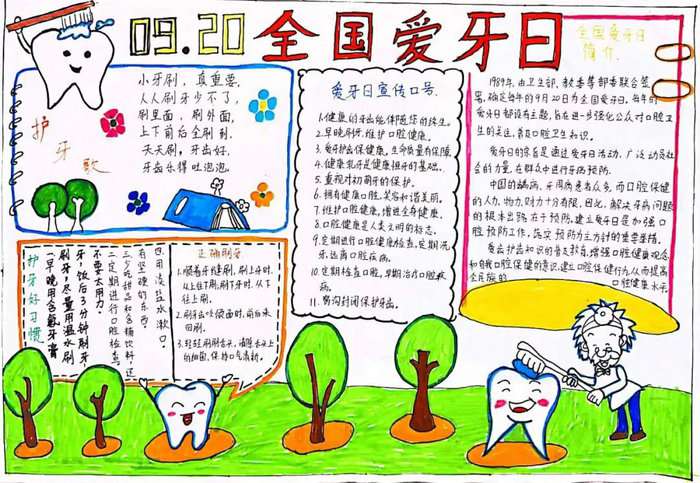 09.20 全国爱牙日
护牙歌
小牙刷,真重要,
人人刷牙少不了,
刷里面,刷外面,
上下前后全刷到,
天天刷,牙出好,
牙齿乐得吐泡泡。
护牙好习惯
一、早晚用含氟牙膏
刷牙,尽量用温水刷
牙,饭后3分钟刷牙
不要太用力
二、定期进行口腔检查
三、少吃甜品和含糖饮料,还
有坚硬的东西
也用淡盐水漱口。
正确刷牙
1.顺着牙缝刷,刷上牙时,
从上往下刷,刷下牙时,从下
往上刷。
2.刷牙齿咬面时,前后来
回刷。
3.轻轻刷刷舌头,清除舌头上
的细菌,保持口气清新。
爱牙日宣传口号:
1.健康的牙齿能伴随您的终生。
2.早晚刷牙,维护口腔健康。
3.爱护牙齿保健康,生命质量有保障。
4.健康乳牙是健康恒牙的基础。
5.重视对初萌牙的保护。
6.拥有健康口腔,笑容和谐美丽。
7.维护口腔健康,增进全身健康。
8.口腔健康是人类文明的标志。
9.定期进行口腔健康检查,定期洗
牙,远离口腔疾病。
10.定期检查口腔,早期治口腔疾
病。
11.窝沟封闭保护牙齿。
全国爱牙日
简介
1989年,由卫生部、教委等部委联合签
署,确定每年的9月20日为全国爱牙日。每年的
爱牙日都设有主题,旨在进一步强化公众对口腔卫
生的关注,普及口腔卫生知识。
爱牙日的宗旨是通过爱牙日活动,广泛动员社
会的力量,在群众中进行牙病预防。
中国的龋病、牙周病患者众多,而口腔保健
的人力、物力、财力十分有限,因此,解决牙病问题
的根本出路在于预防。建立爱牙日是加强口
腔预防工作,落实预防为主方针的重要举措。
使口腔知识的普及教育,增强口腔健康观念
和自我口腔保健的意识,建立口腔保健行为,从而提高
全民族的口腔健康水平。